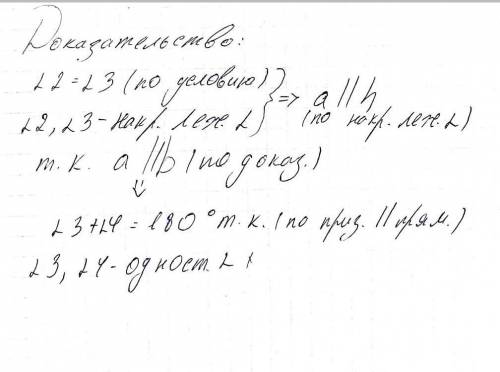 Доказательство:
∠2 = ∠3 (по условию) } => a || h
∠2, ∠3 - накр. леж. ∠ } (по накр. леж. ∠)
т.к. a || b (по доказ.)
⇓
∠3 + ∠4 = 180° т.к. (по приз. || прям.)
∠3, ∠4 - одност. ∠